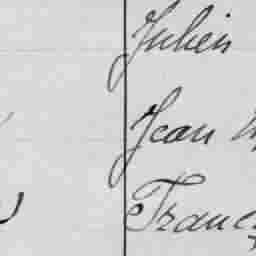 Julien
Jean
Franc